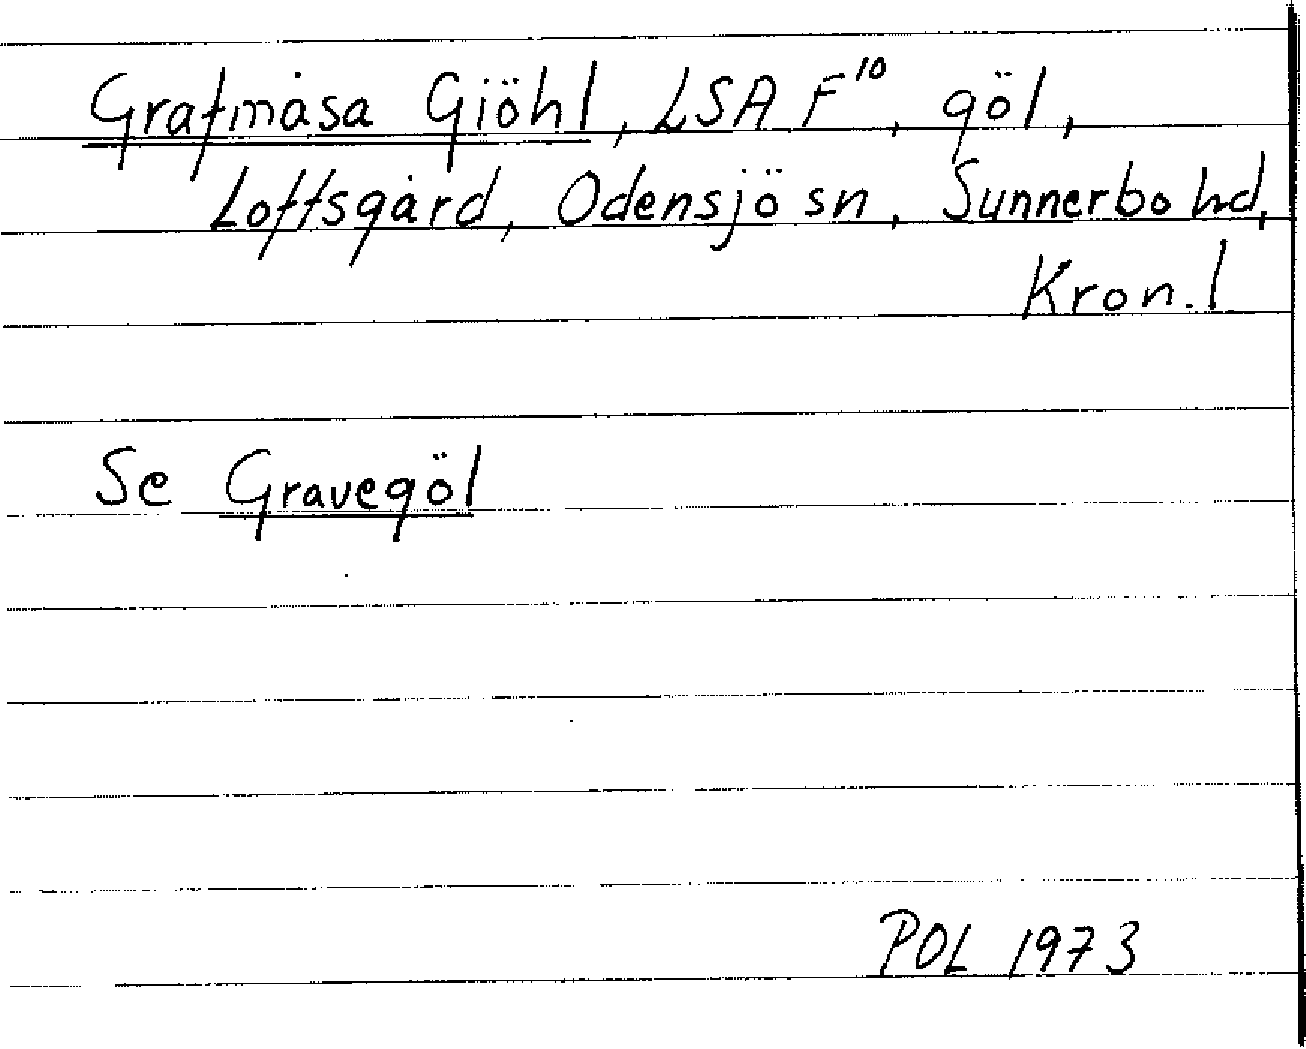 Grafmåsa Gjöhl, LSA F¹⁰, göl,
Loftsgård, Odensjö sn, Sunnerbo hd,
Kron. l
Se Gravegöl
POL 1973